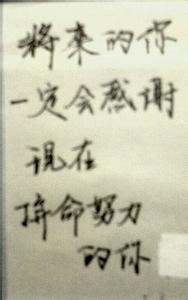 將来的你
一定会感谢
现在
拼命努力
的你